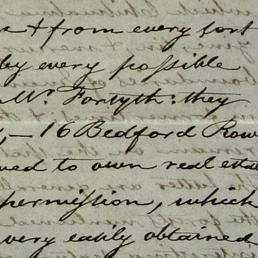 & from every fort
by every possible
Mr. Forsyth: they
– 16 Bedford Row
to own real esta
permission, which
very easily obtained